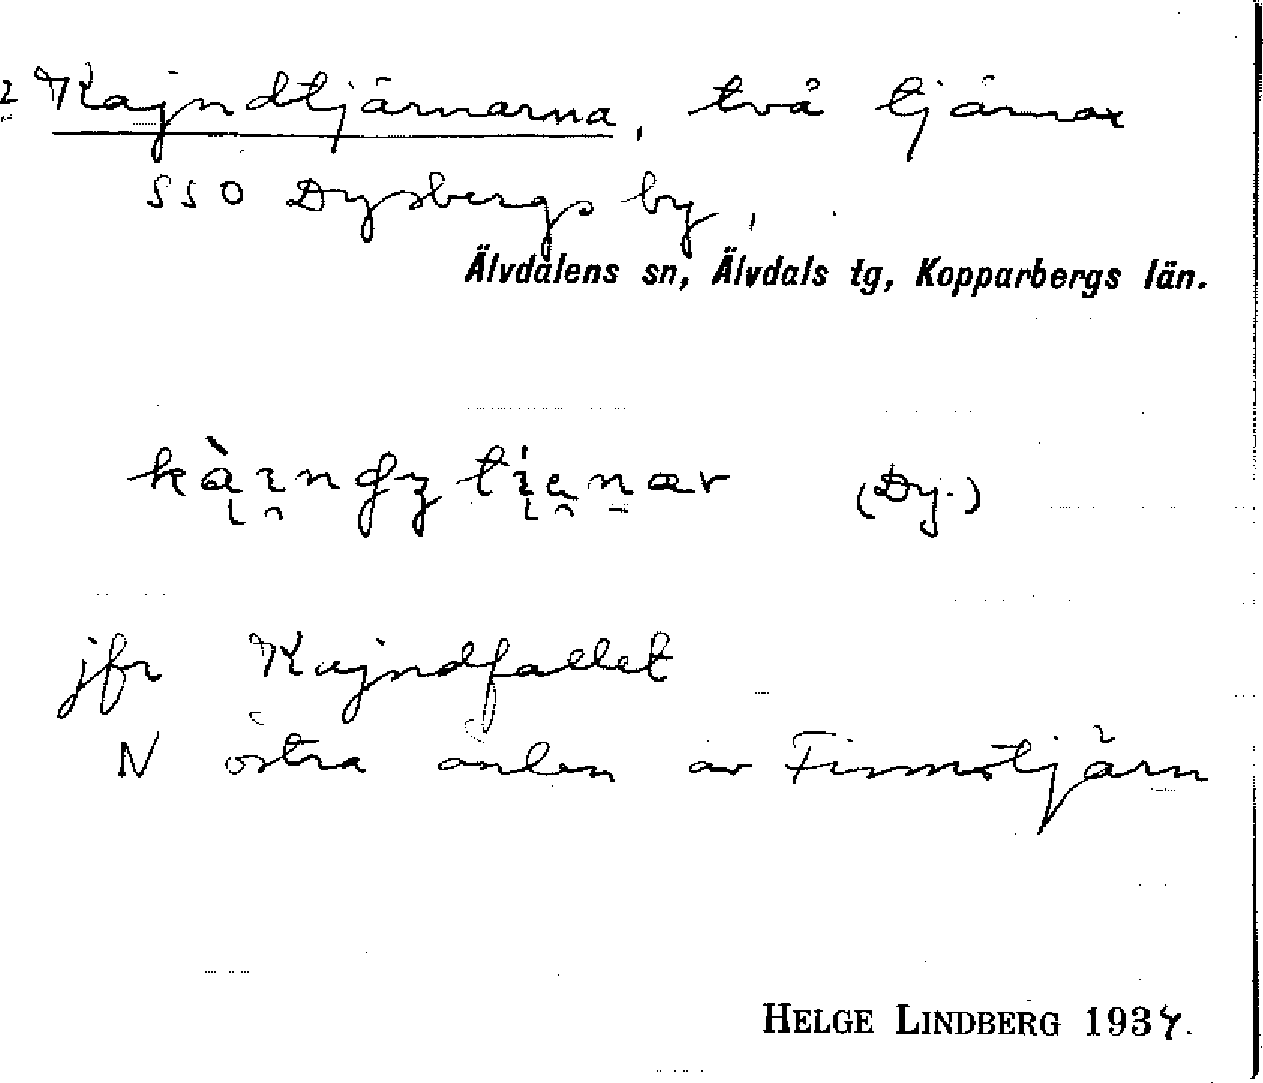 Kajndtjärnarna, två tjärnar
SSO Dysbergs by,
Älvdalens sn, Älvdals tg, Kopparbergs län.
(Dy.)
jfr Kajndfallet
N östra änden av Finnotjärn
HELGE LINDBERG 1934.